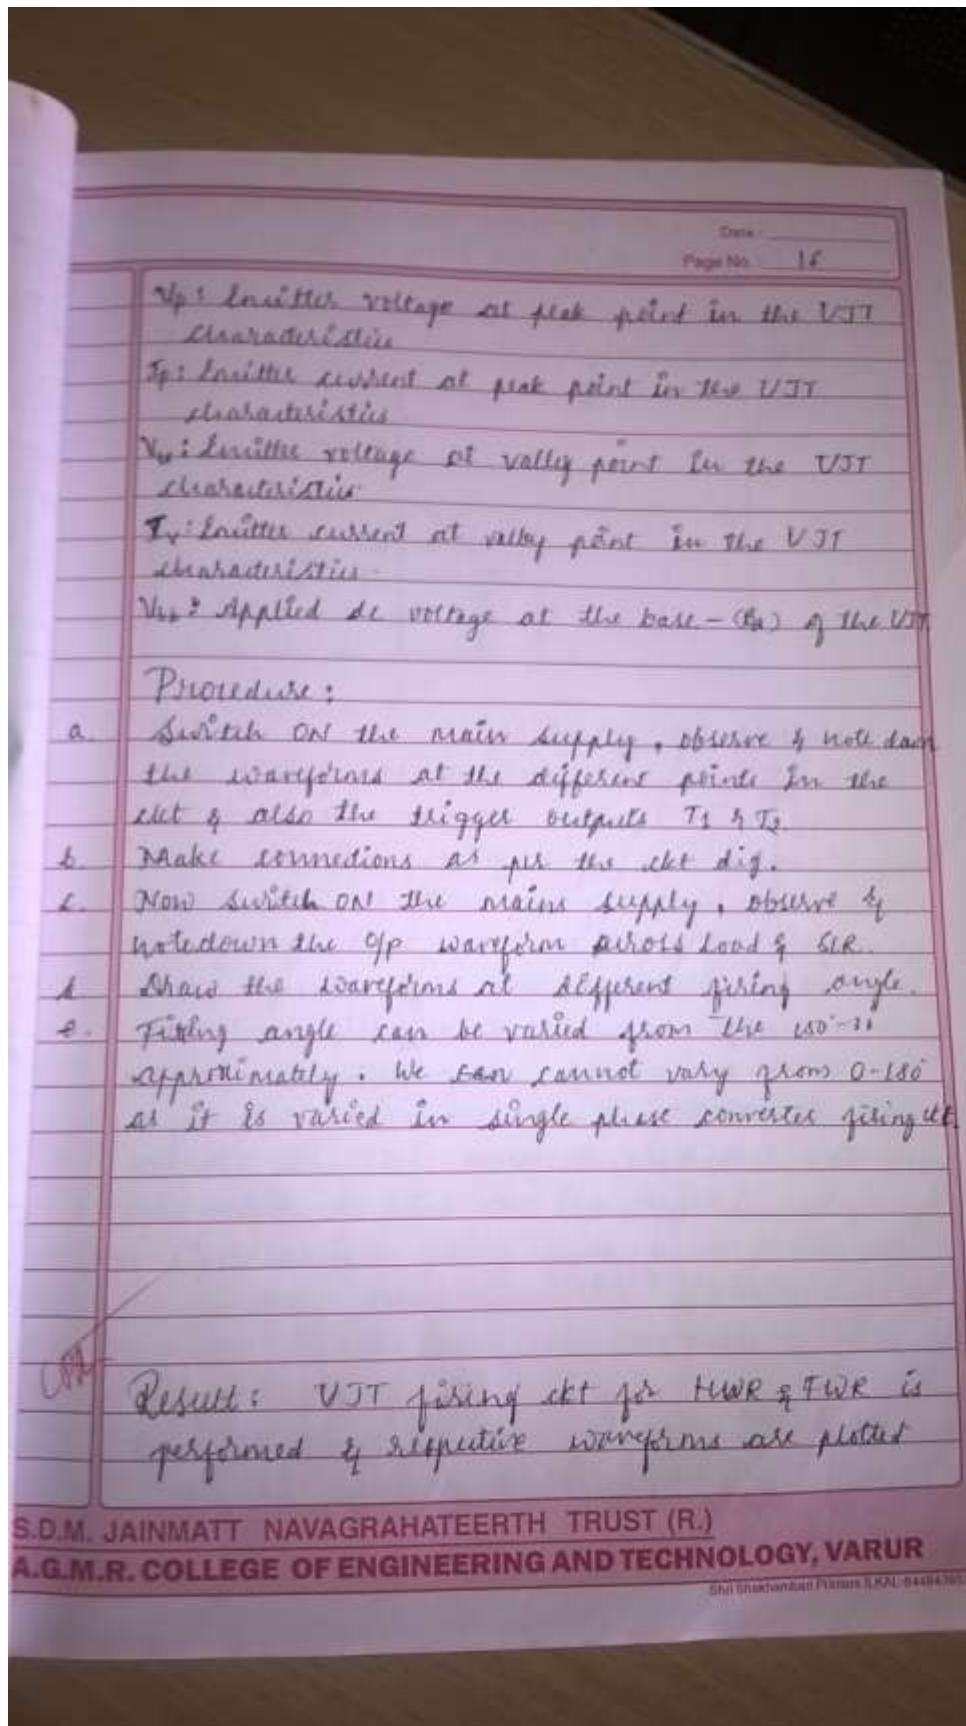 Date
Page No. 16
Vp: Emitter voltage at peak point in the UJT
characteristics
Ip: Emitter current at peak point in the UJT
characteristics
Vv: Emitter voltage at valley point in the UJT
characteristics
Iv: Emitter current at valley point in the UJT
characteristics.
Vbb: Applied dc voltage at the base - (B2) of the UJT
Procedure:
a. Switch ON the main supply, observe & note down
the waveforms at the different points in the
ckt & also the trigger outputs T1 & T2.
b. Make connections as per the ckt dig.
c. Now switch ON the mains supply, observe &
notedown the o/p waveform across load & SCR.
d. Draw the waveforms at different firing angle.
e. Firing angle can be varied from the
approximately. We can cannot vary from 0-180°
as it is varied in single phase converter firing ckt.
Result: UJT firing ckt for HWR & FWR is
performed & respective waveforms are plotted
S.D.M. JAINMATT NAVAGRAHATEERTH TRUST (R.)
A.G.M.R. COLLEGE OF ENGINEERING AND TECHNOLOGY, VARUR
Shri Shakhambari Printers ILKAL